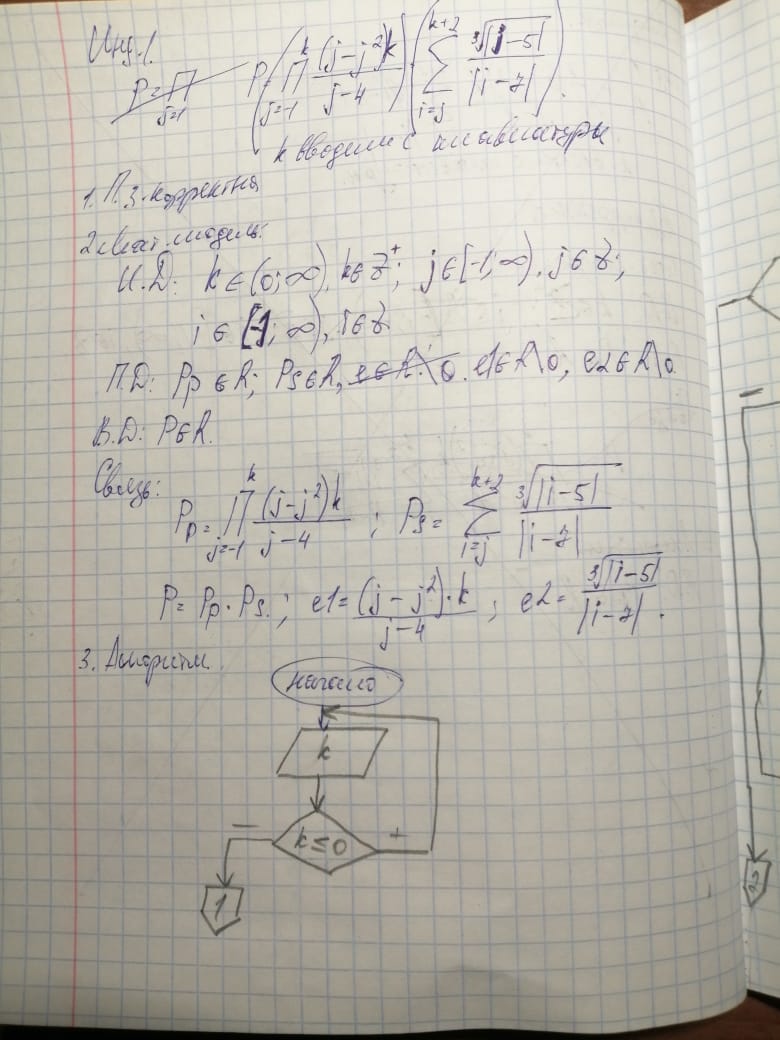 Инд.1.
P=∏ j=1
P=(∏_{j=-1}^{k} (j-j²)k / (j-4)) · (∑_{i=j}^{k+2} ∛|i-5| / |i-7|).
k вводим с клавиатуры
1. П.З. корректна
2. Мат. модель:
И.Д: k∈(0;∞), k∈Z⁺; j∈[-1;∞), j∈Z;
i∈[-1;∞), i∈Z.
П.Д: Pp∈R; Ps∈R, e∈R\0. e1∈R\0, e2∈R\0.
В.Д: P∈R.
Связь:
Pp=∏_{j=-1}^{k} (j-j²)k / (j-4) ; Ps=∑_{i=j}^{k+2} ∛|i-5| / |i-7|
P=Pp·Ps. ; e1=(j-j²)·k / (j-4) ; e2=∛|i-5| / |i-7|.
3. Алгоритм.
начало
k
k≤0
− +
1